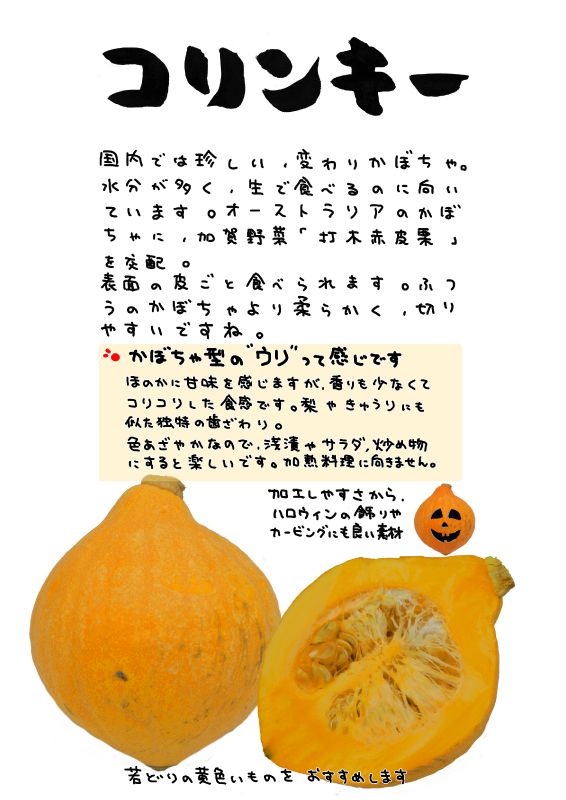 コリンキー
国内では珍しい，変わりかぼちゃ。
水分が多く，生で食べるのに向い
ています。オーストラリアのかぼ
ちゃに，加賀野菜「打木赤皮栗」
を交配。
表面の皮ごと食べられます。ふつ
うのかぼちゃより柔らかく，切り
やすいですね。
かぼちゃ型の"ウリ"って感じです
ほのかに甘味を感じますが，香りも少なくて
コリコリした食感です。梨やきゅうりにも
似た独特の歯ざわり。
色あざやかなので，浅漬やサラダ，炒め物
にすると楽しいです。加熱料理に向きません。
加工しやすさから，
ハロウィンの飾りや
カービングにも良い素材
若どりの黄色いものを おすすめします